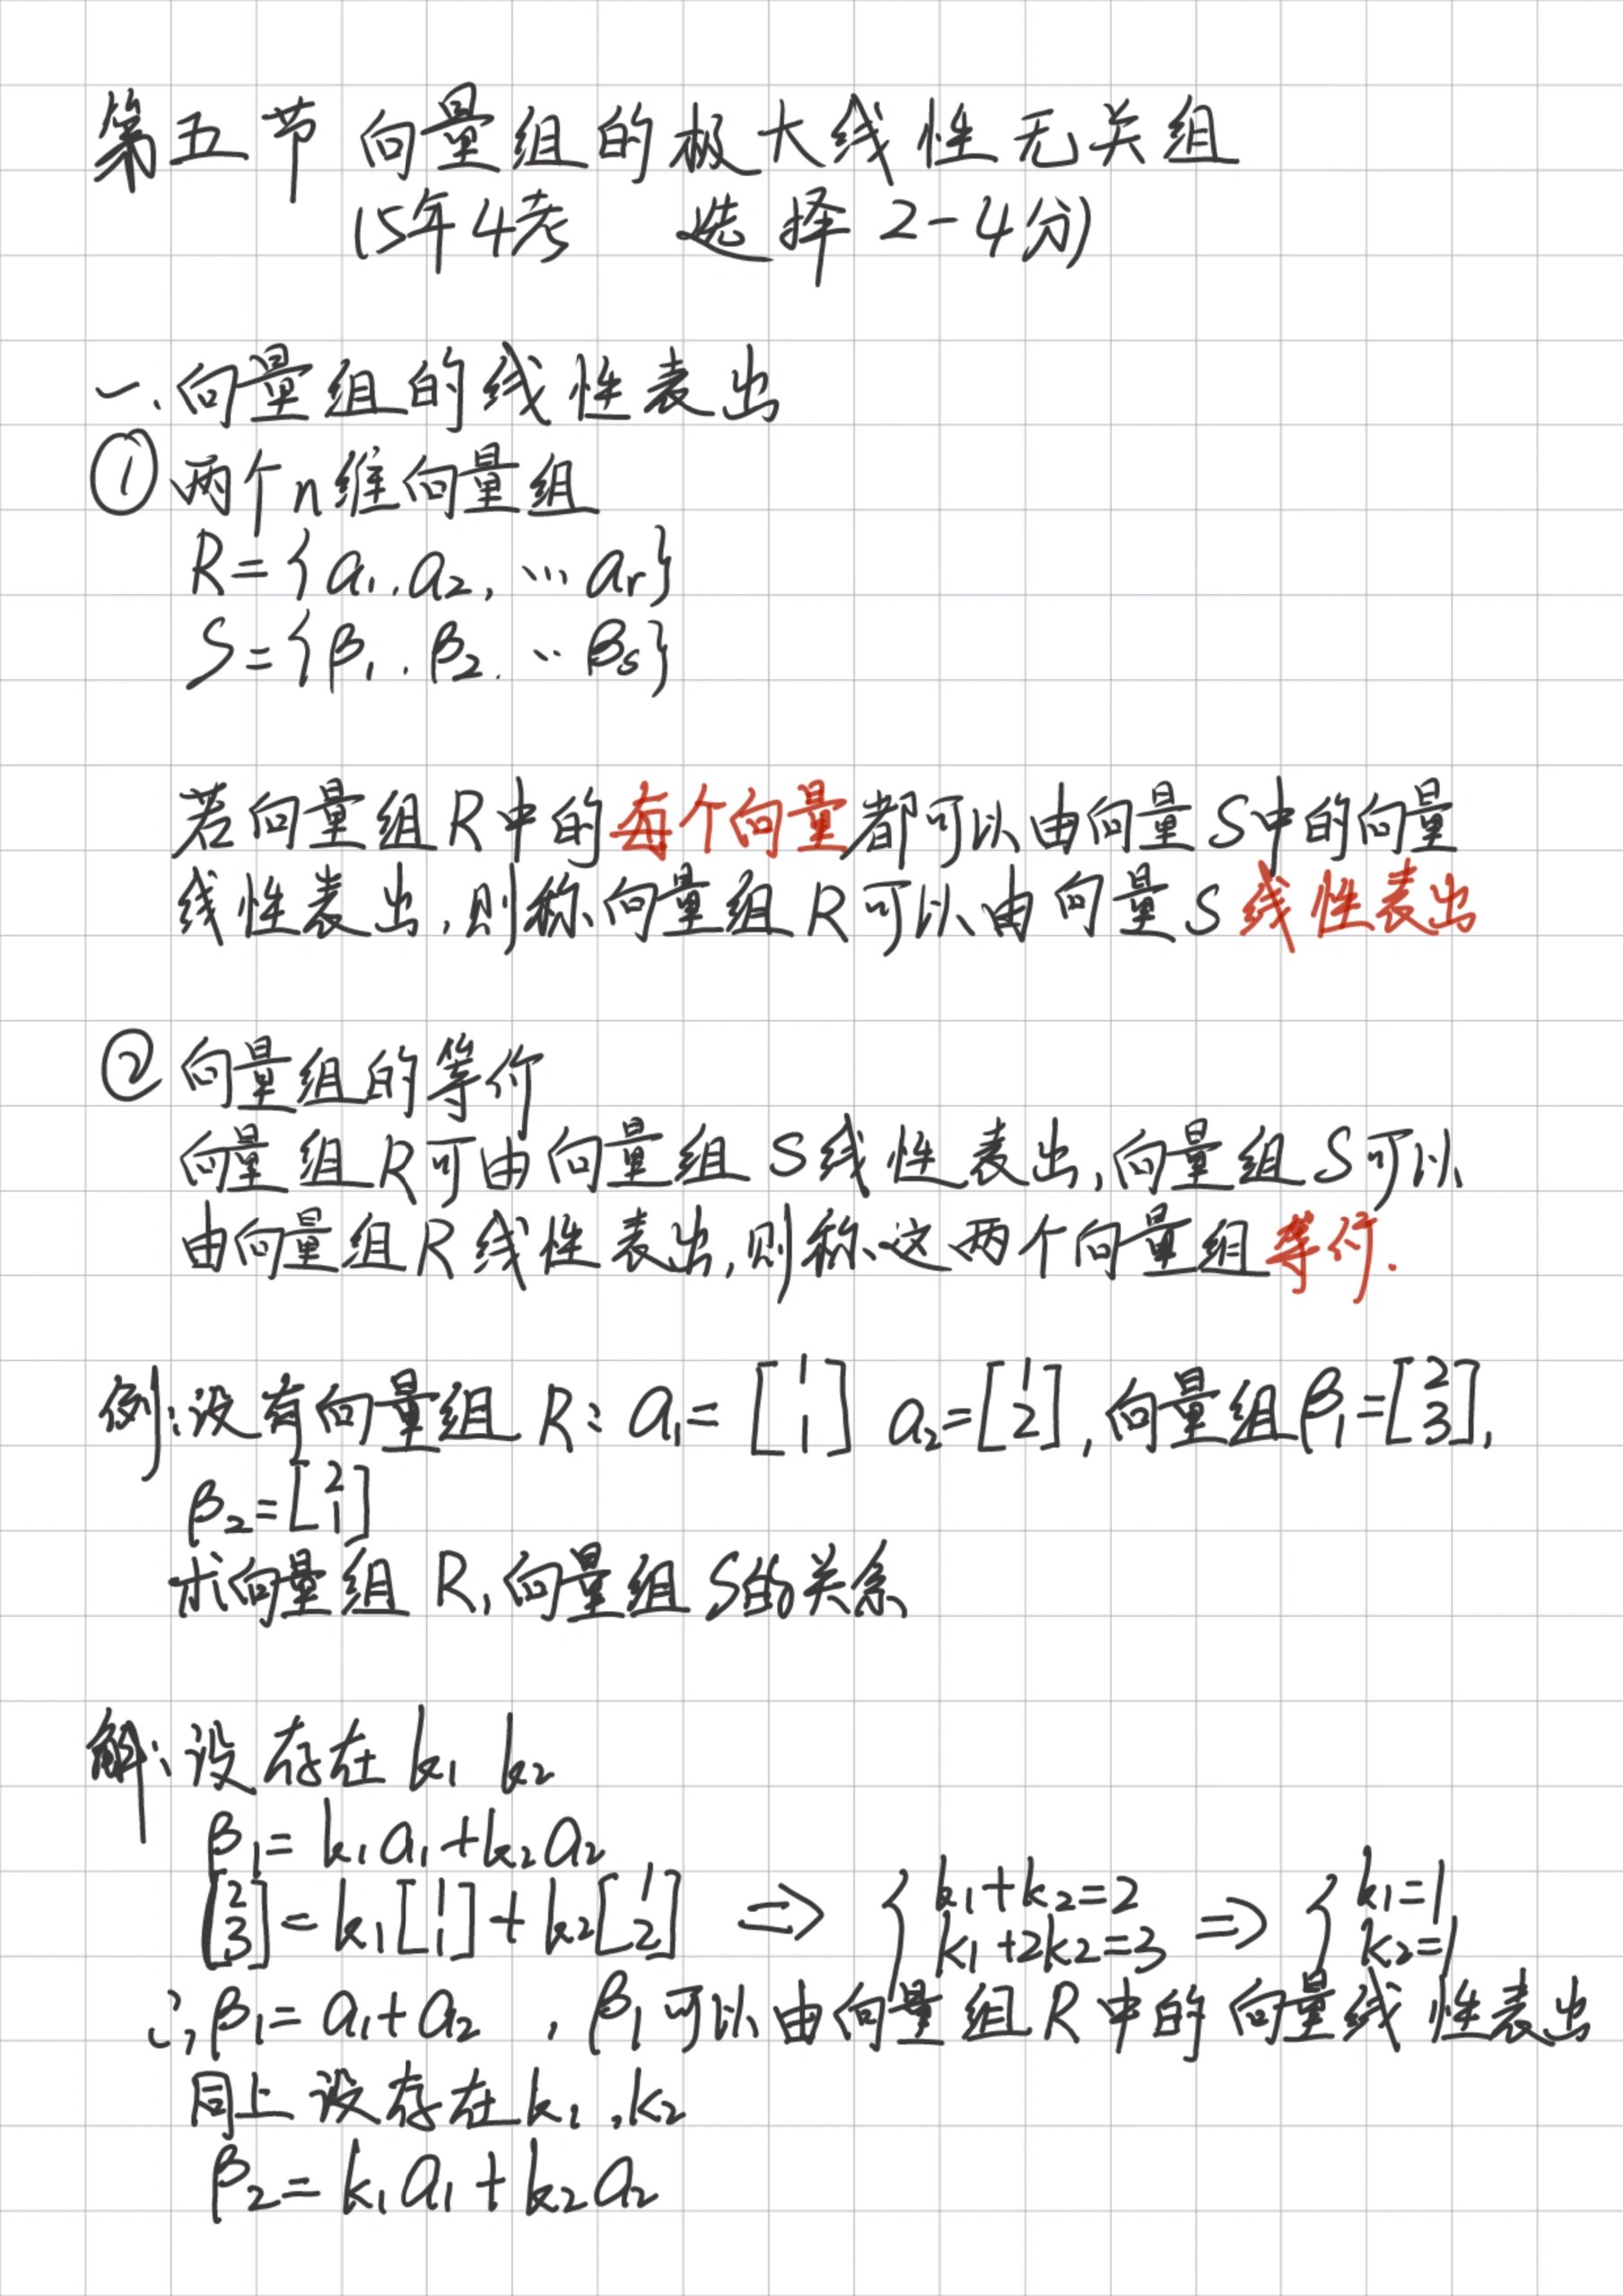 第五节 向量组的极大线性无关组
(5年4考 选择 2-4分)
一.向量组的线性表出
① 两个n维向量组
R={a₁.a₂,…aᵣ}
S={β₁.β₂.…βₛ}
若向量组R中的每个向量都可以由向量S中的向量
线性表出,则称向量组R可以由向量S线性表出
② 向量组的等价
向量组R可由向量组S线性表出,向量组S可以
由向量组R线性表出,则称这两个向量组等价.
例:设有向量组 R: a₁=[1 1] a₂=[1 2],向量组β₁=[2 3],
β₂=[2 1]
求向量组R,向量组S的关系
解:设存在 k₁ k₂
β₁=k₁a₁+k₂a₂
[2 3]=k₁[1 1]+k₂[1 2] ⇒ {k₁+k₂=2 k₁+2k₂=3 ⇒ {k₁=1 k₂=1
∴β₁=a₁+a₂ ,β₁可以由向量组R中的向量线性表出
同上设存在k₁,k₂
β₂=k₁a₁+k₂a₂